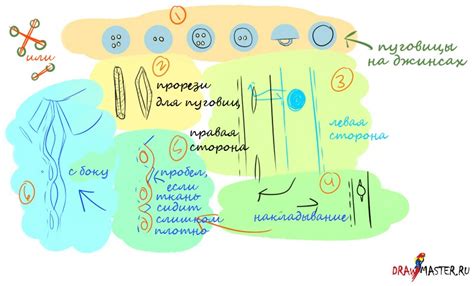 1
или
пуговицы
на джинсах
2
прорези
для пуговиц
3
правая
сторона
левая
сторона
5
с боку
пробел,
если
ткань
сидит
слишком
плотно
6
4
накладывание
DRAWMASTER.RU